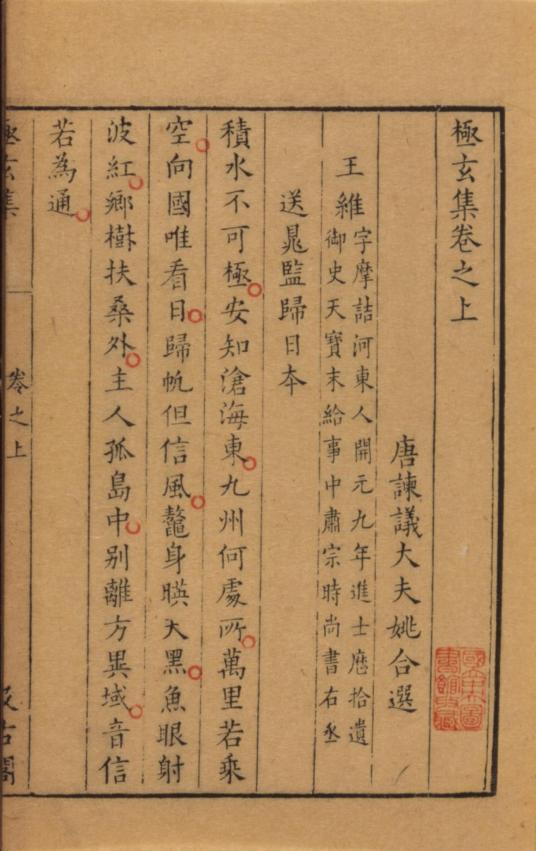 極玄集卷之上
唐諫議大夫姚合選
王維
字摩詰河東人開元九年進士歷拾遺
御史天寶末給事中肅宗時尚書右丞
送晁監歸日本
積水不可極安知滄海東九州何處所萬里若乘
空向國唯看日歸帆但信風鼇身暎天黑魚眼射
波紅鄉樹扶桑外主人孤島中别離方異域音信
若為通
極玄集
卷之上
汲古閣